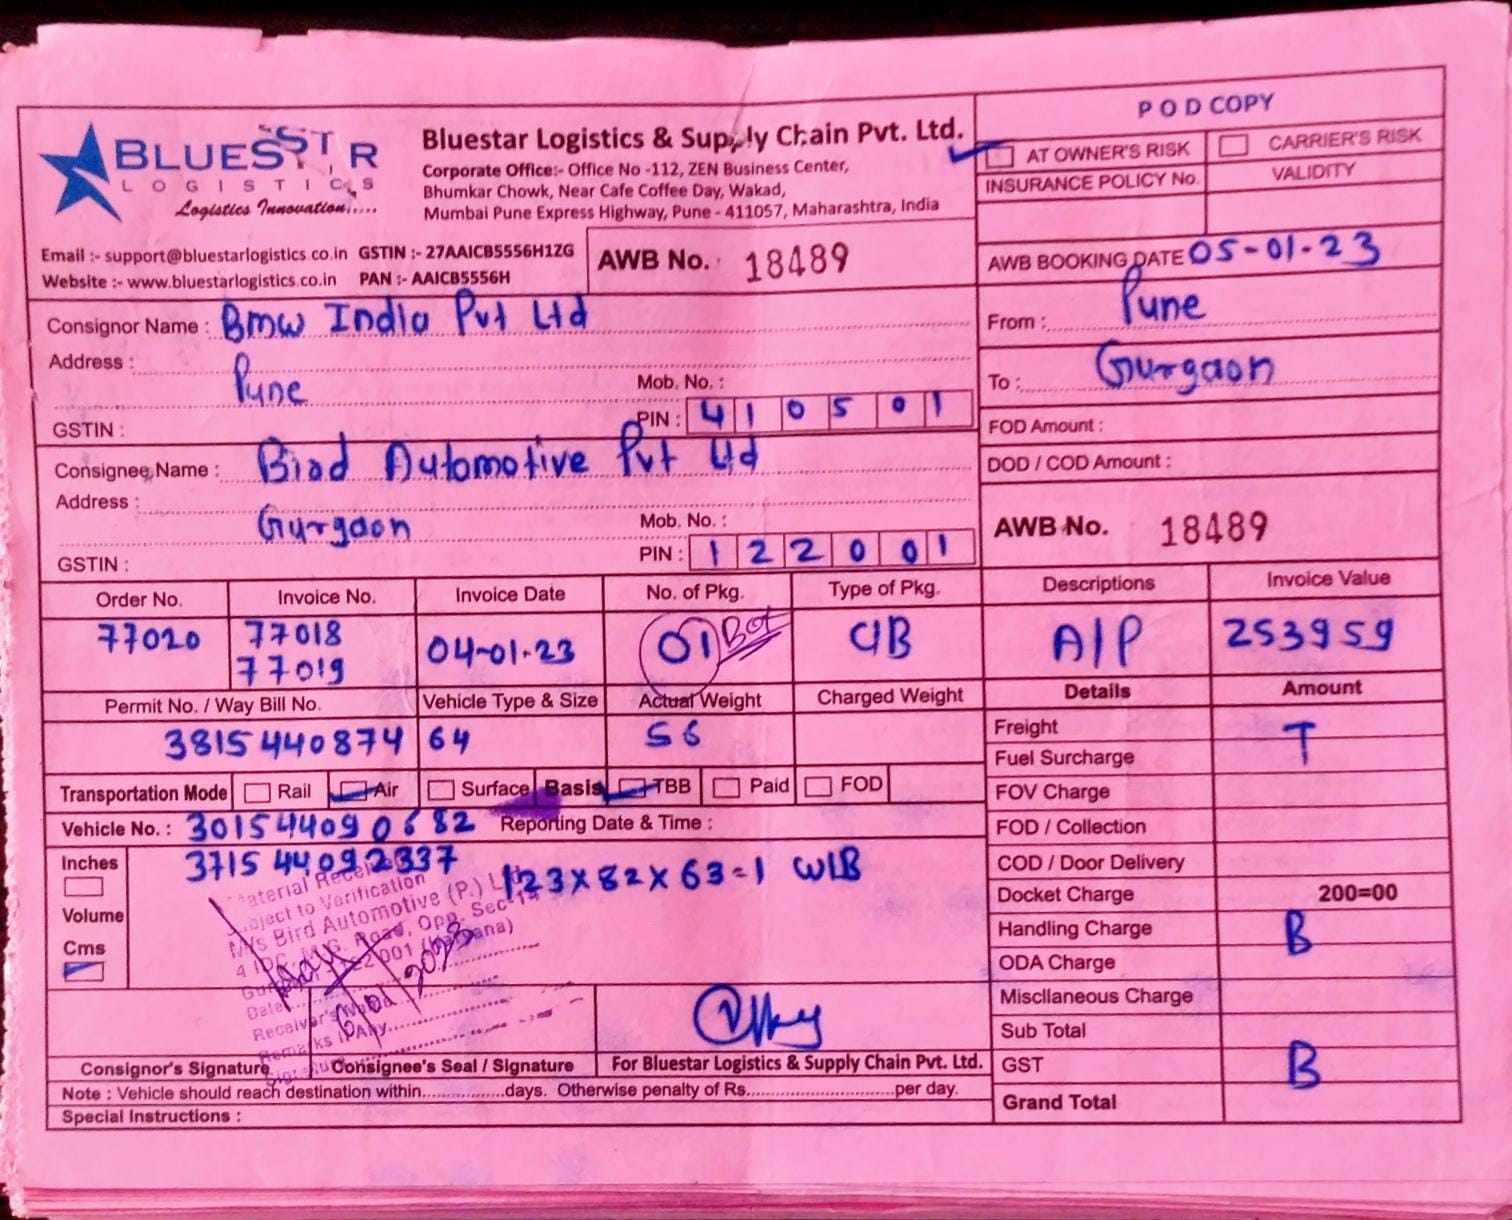 BLUESTR
LOGISTICS
Logistics Innovation.....
Bluestar Logistics & Supply Chain Pvt. Ltd.
Corporate Office:- Office No -112, ZEN Business Center,
Bhumkar Chowk, Near Cafe Coffee Day, Wakad,
Mumbai Pune Express Highway, Pune - 411057, Maharashtra, India
Email :- support@bluestarlogistics.co.in GSTIN :- 27AAICB5556H1ZG
Website :- www.bluestarlogistics.co.in PAN :- AAICB5556H
AWB No. 18489
POD COPY
AT OWNER'S RISK CARRIER'S RISK
INSURANCE POLICY No. VALIDITY
AWB BOOKING DATE 05-01-23
From : Pune
To : Gurgaon
FOD Amount :
DOD / COD Amount :
AWB No. 18489
Consignor Name : Bmw India Pvt Ltd
Address :
Pune
Mob. No. :
GSTIN : PIN : 410501
Consignee Name : Bird Automotive Pvt Ltd
Address :
Gurgaon
Mob. No. :
GSTIN : PIN : 122001
Order No. Invoice No. Invoice Date No. of Pkg. Type of Pkg. Descriptions Invoice Value
77020 77018 04-01-23 01 Box C/B A/P 253959
77019
Permit No. / Way Bill No. Vehicle Type & Size Actual Weight Charged Weight Details Amount
3815 440874 64 56
Freight T
Fuel Surcharge
Transportation Mode Rail Air Surface Basis TBB Paid FOD
FOV Charge
Vehicle No. : 301544090682 Reporting Date & Time :
FOD / Collection
371544092337
Inches
123x82x63=1 W/B
Volume
Cms
COD / Door Delivery
Docket Charge 200=00
Handling Charge B
ODA Charge
Miscllaneous Charge
Sub Total
GST B
Grand Total
Material Received
Subject to Verification
M/s Bird Automotive (P.) Ltd.
4 IDC, M.G. Road, Opp. Sec-14
122001 (Haryana)
Date
Receiver's
Remarks if Any
Consignor's Signature Consignee's Seal / Signature For Bluestar Logistics & Supply Chain Pvt. Ltd.
Note : Vehicle should reach destination within..................days. Otherwise penalty of Rs................................per day.
Special Instructions :